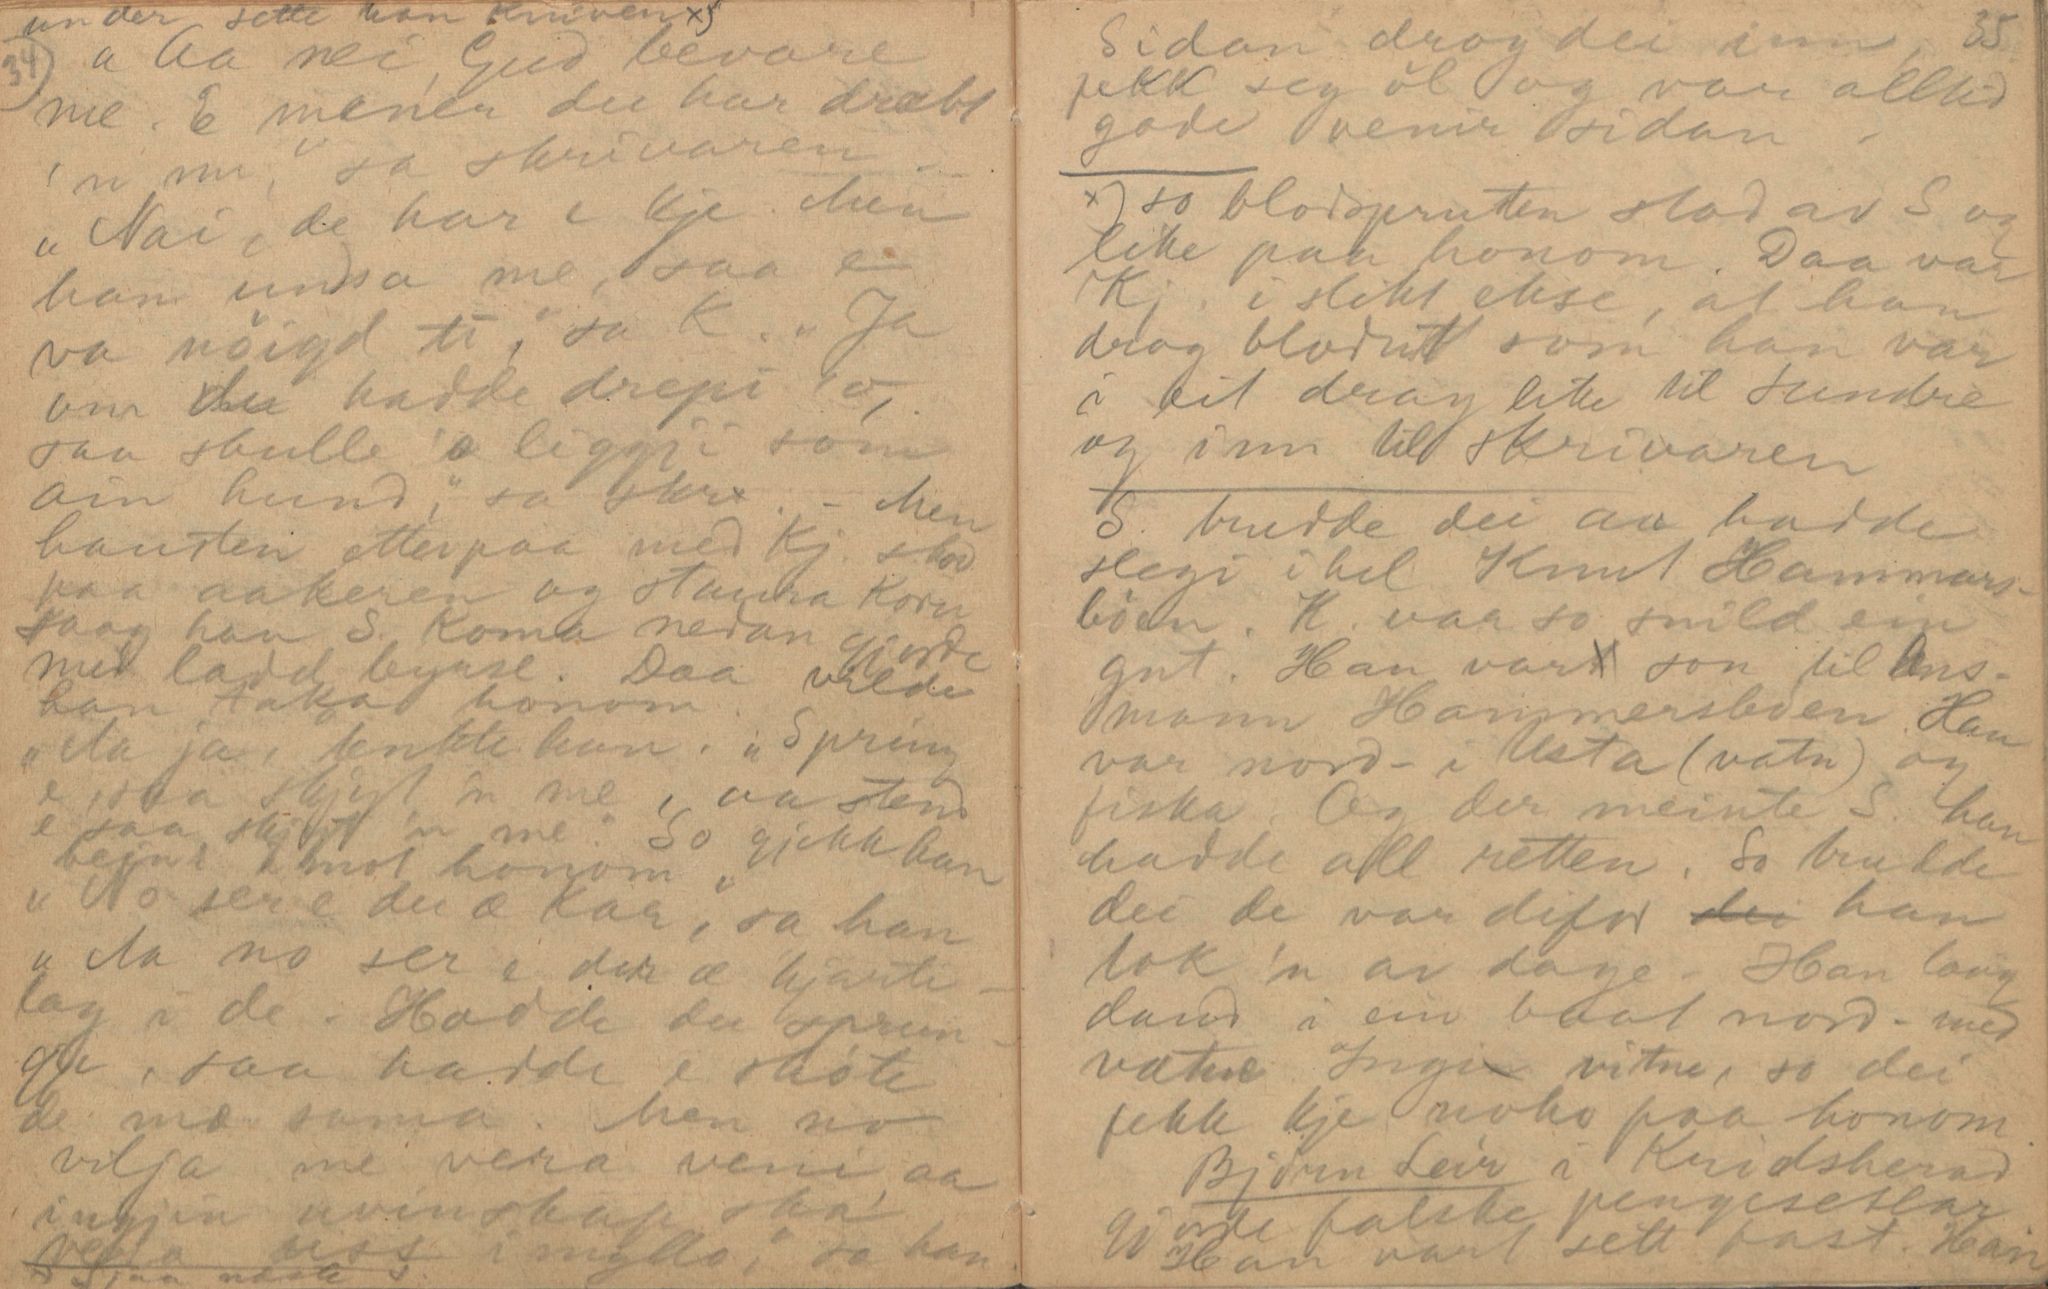 under sette han kniven x)
34)
„Aa nei, Gud bevare
me. E mener du har dræbt
'n nu," sa skrivaren –
„Nai, de har e kje. Men
han undsa me, saa e
va nöigd ti," sa K. „Ja
um du hadde drepi 'o,
saa skulle 'o liggji som
ain hund," sa skr. – Men
hausten etterpaa med Kj. stod
paa aakeren og staura korn
saag han S. koma nedan gjorde
med ladd byrse. Daa vilde
han taka honom.
„Aa ja, tenkte han. „Spring
e, saa skjyt 'n me, aa stend
e saa skjyt 'n me." So gjekk han
beint imot honom
„No ser e du æ kar", sa han
„Aa no ser e der æ hjarte-
lag i de. Hadde du sprun-
gje, saa hadde e skote
de mæ sama. Men no
vilja me vera veni, aa
ingjin uvinskap ska
vera uss imyllo," sa han
x Sjaa næste s.
35
Sidan drog dei inn,
fekk seg öl og var alltid
gode venir sidan.
x) so blodspruten stod av S og
like paa honom. Daa var
Kj. i slikt ekse, at han
drog blodut som han var
i eit drag like til Sundre
og inn til skrivaren
S. trudde dei aa hadde
slegi ihel Knut Hammars-
böen. K. vaa so snild ein
gut. Han var son til lens-
mann Hammersböen. Han
var nord- i Usta (vatn) og
fiska. Og der meinte S. han
hadde all retten. So trudde
dei de var difor dei han
tok 'n av dage. Han laag
daud i ein baat nord- med
vatne. Ingin vitne, so dei
fekk kje noko paa honom.
Björn Leir i Kridsherad
gjorde falske pengesetlar
Han vart sett fast. Han